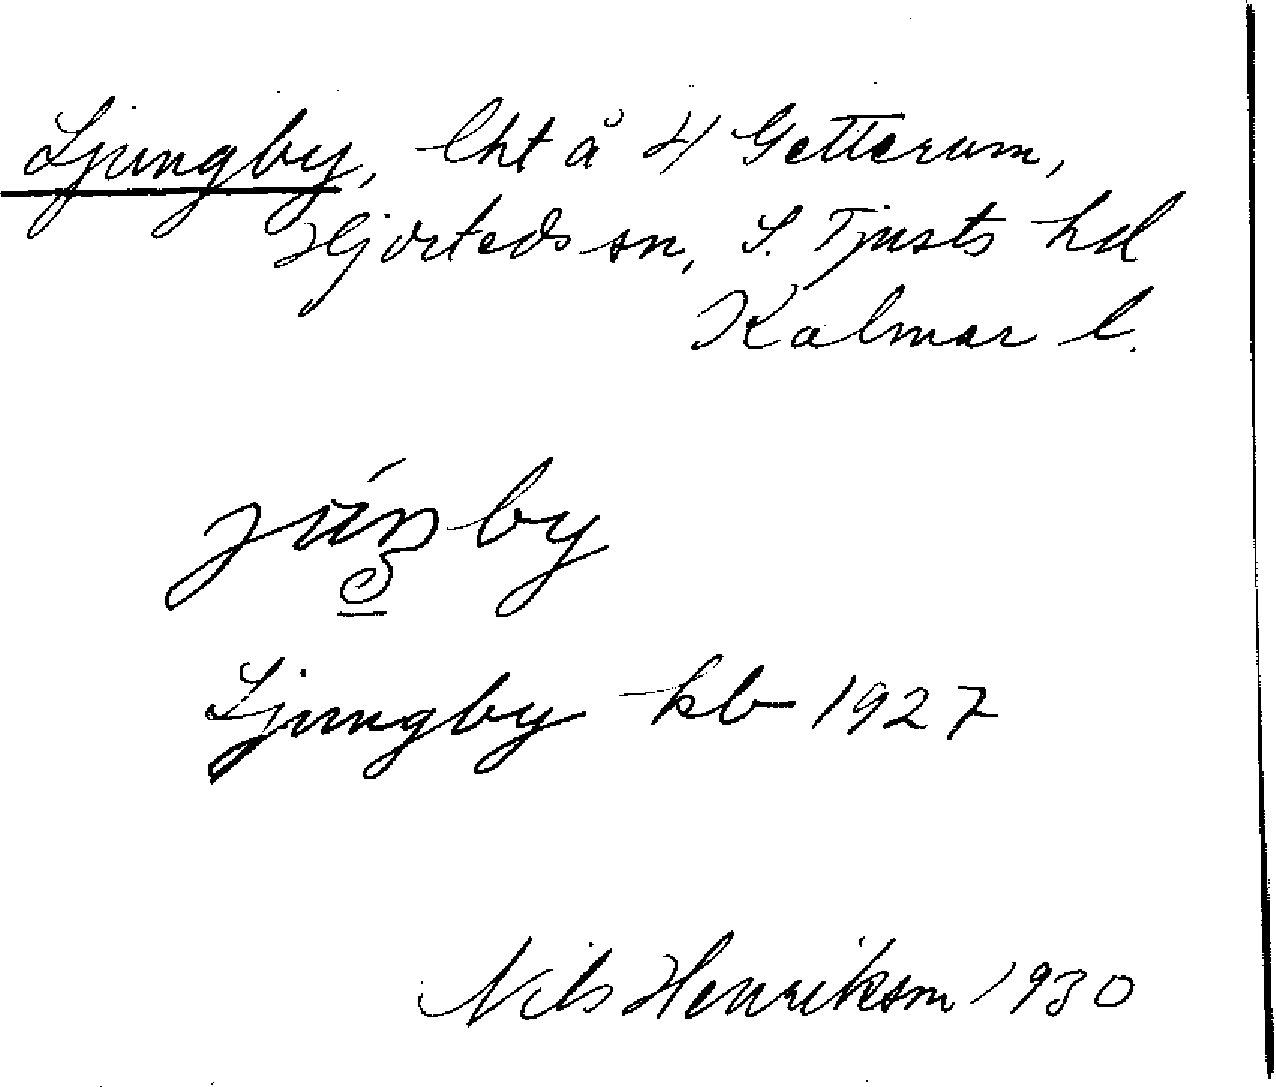 Ljungby, lht å 4 Getterum,
Hjorteds sn, S. Tjusts hd
Kalmar l.
Ljungby kb 1927
Nils Henrikson 1930